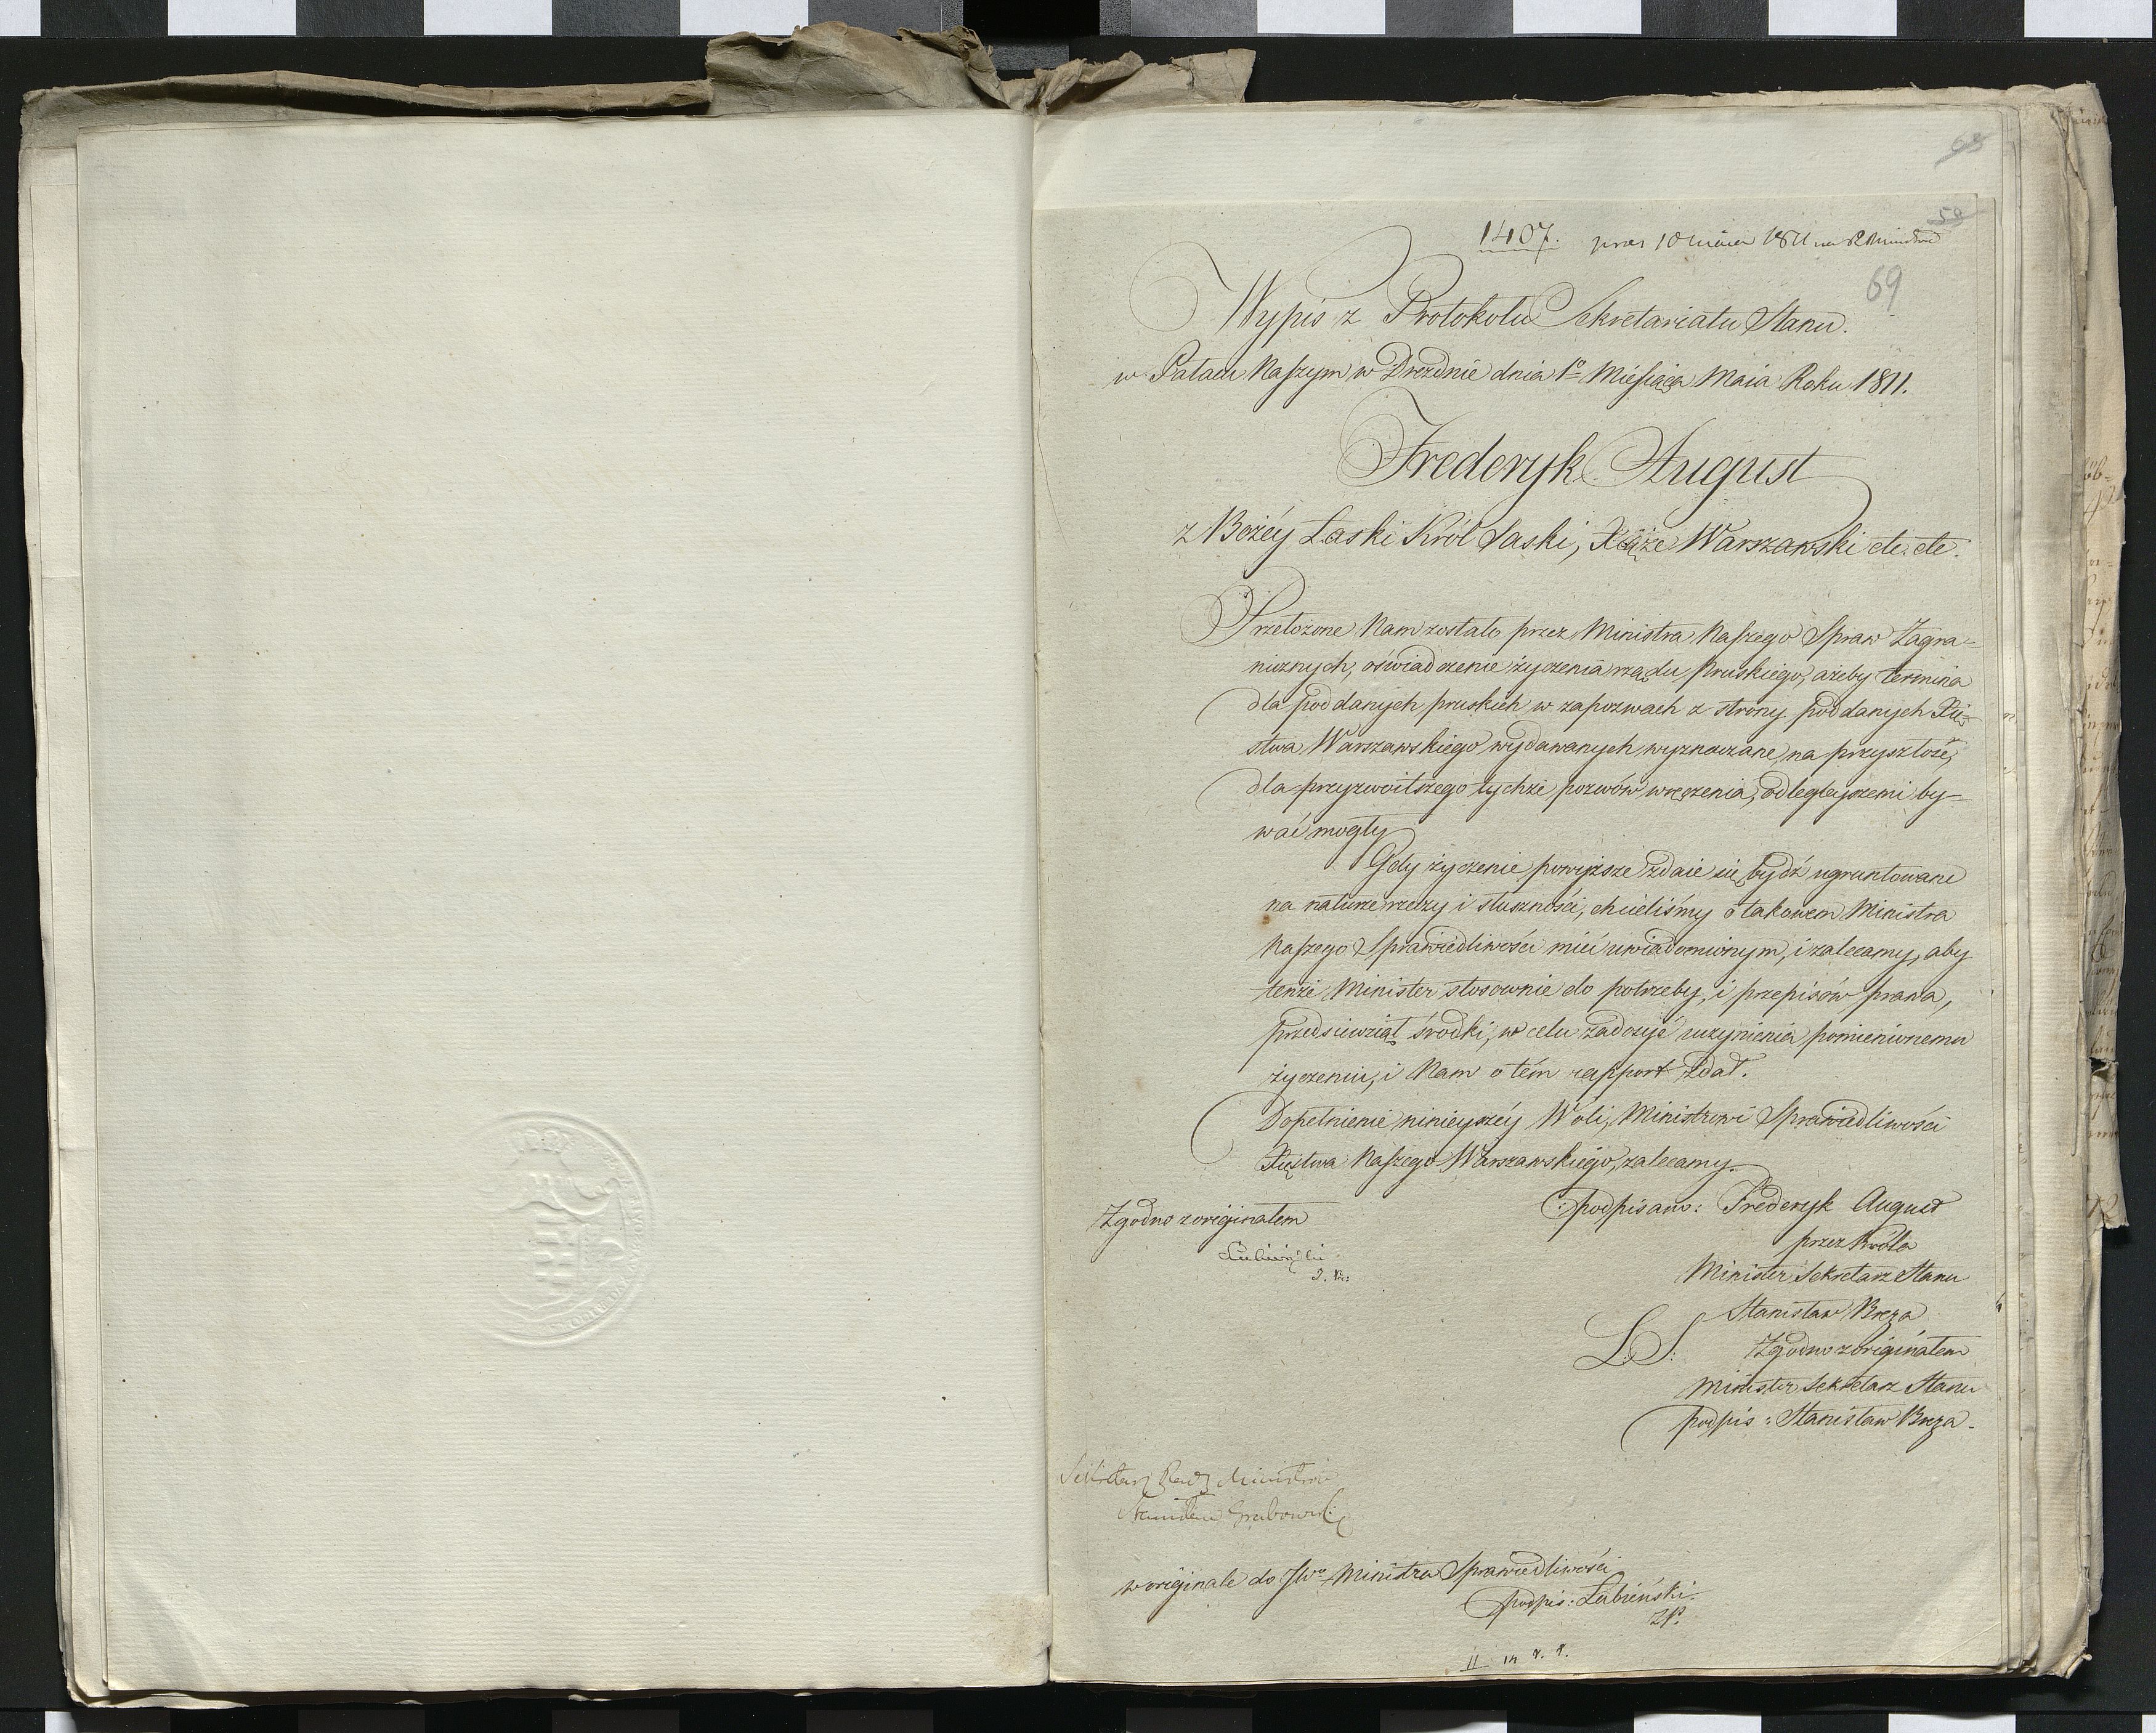 68
58
1407. prez 10 1811 na R Ministrów
69
Wypis z Protokołu Sekretariatu Stanu.
w Pałacu Naszym w Dreznie dnia 1º Miesiąca Maia Roku 1811.
Frederyk August
z Bożéy Łaski Król Saski, Xiąże Warszawski etc. etc.
Przełożone Nam zostało przez Ministra Naszego Spraw Zagra=
nicznych, oświadczenie życzenia rządu Pruskiego, ażeby termina
dla poddanych pruskich w zapozwach z strony poddanych Xię=
stwa Warszawskiego wydawanych wyznaczane, na przyszłość,
dla przyzwoitszego tychże pozwów wręczenia, odległeyszemi by=
wać mogły.
Gdy życzenie powyższe zdaie się bydź ugruntowane
na naturze rzeczy i słuszności, chcieliśmy o takowem Ministra
Naszego Sprawiedliwości mieć uwiadomionym, i zalecamy, aby
tenże Minister stosownie do potrzeby, i przepisów prawa,
przedsiewziął środki, w celu zadosyć uczynienia pomienionemu
życzeniu, i Nam o tém rapport zdał.
Dopełnienie ninieyszéy Woli, Ministrowi Sprawiedliwości
Xięstwa Naszego Warszawskiego, zalecamy.
podpisano: Frederyk August
przez Króla
Minister Sekretarz Stanu
Stanisław Breza
L. S. Zgodno z originałem
Minister Sekretarz Stanu
podpis: Stanisław Breza.
Zgodno z originałem
Łubieński
Sekretarz Rady Ministrów
Stanisław Grabowski
w originale do JWo Ministra Sprawiedliwości
podpis: Łubieński.